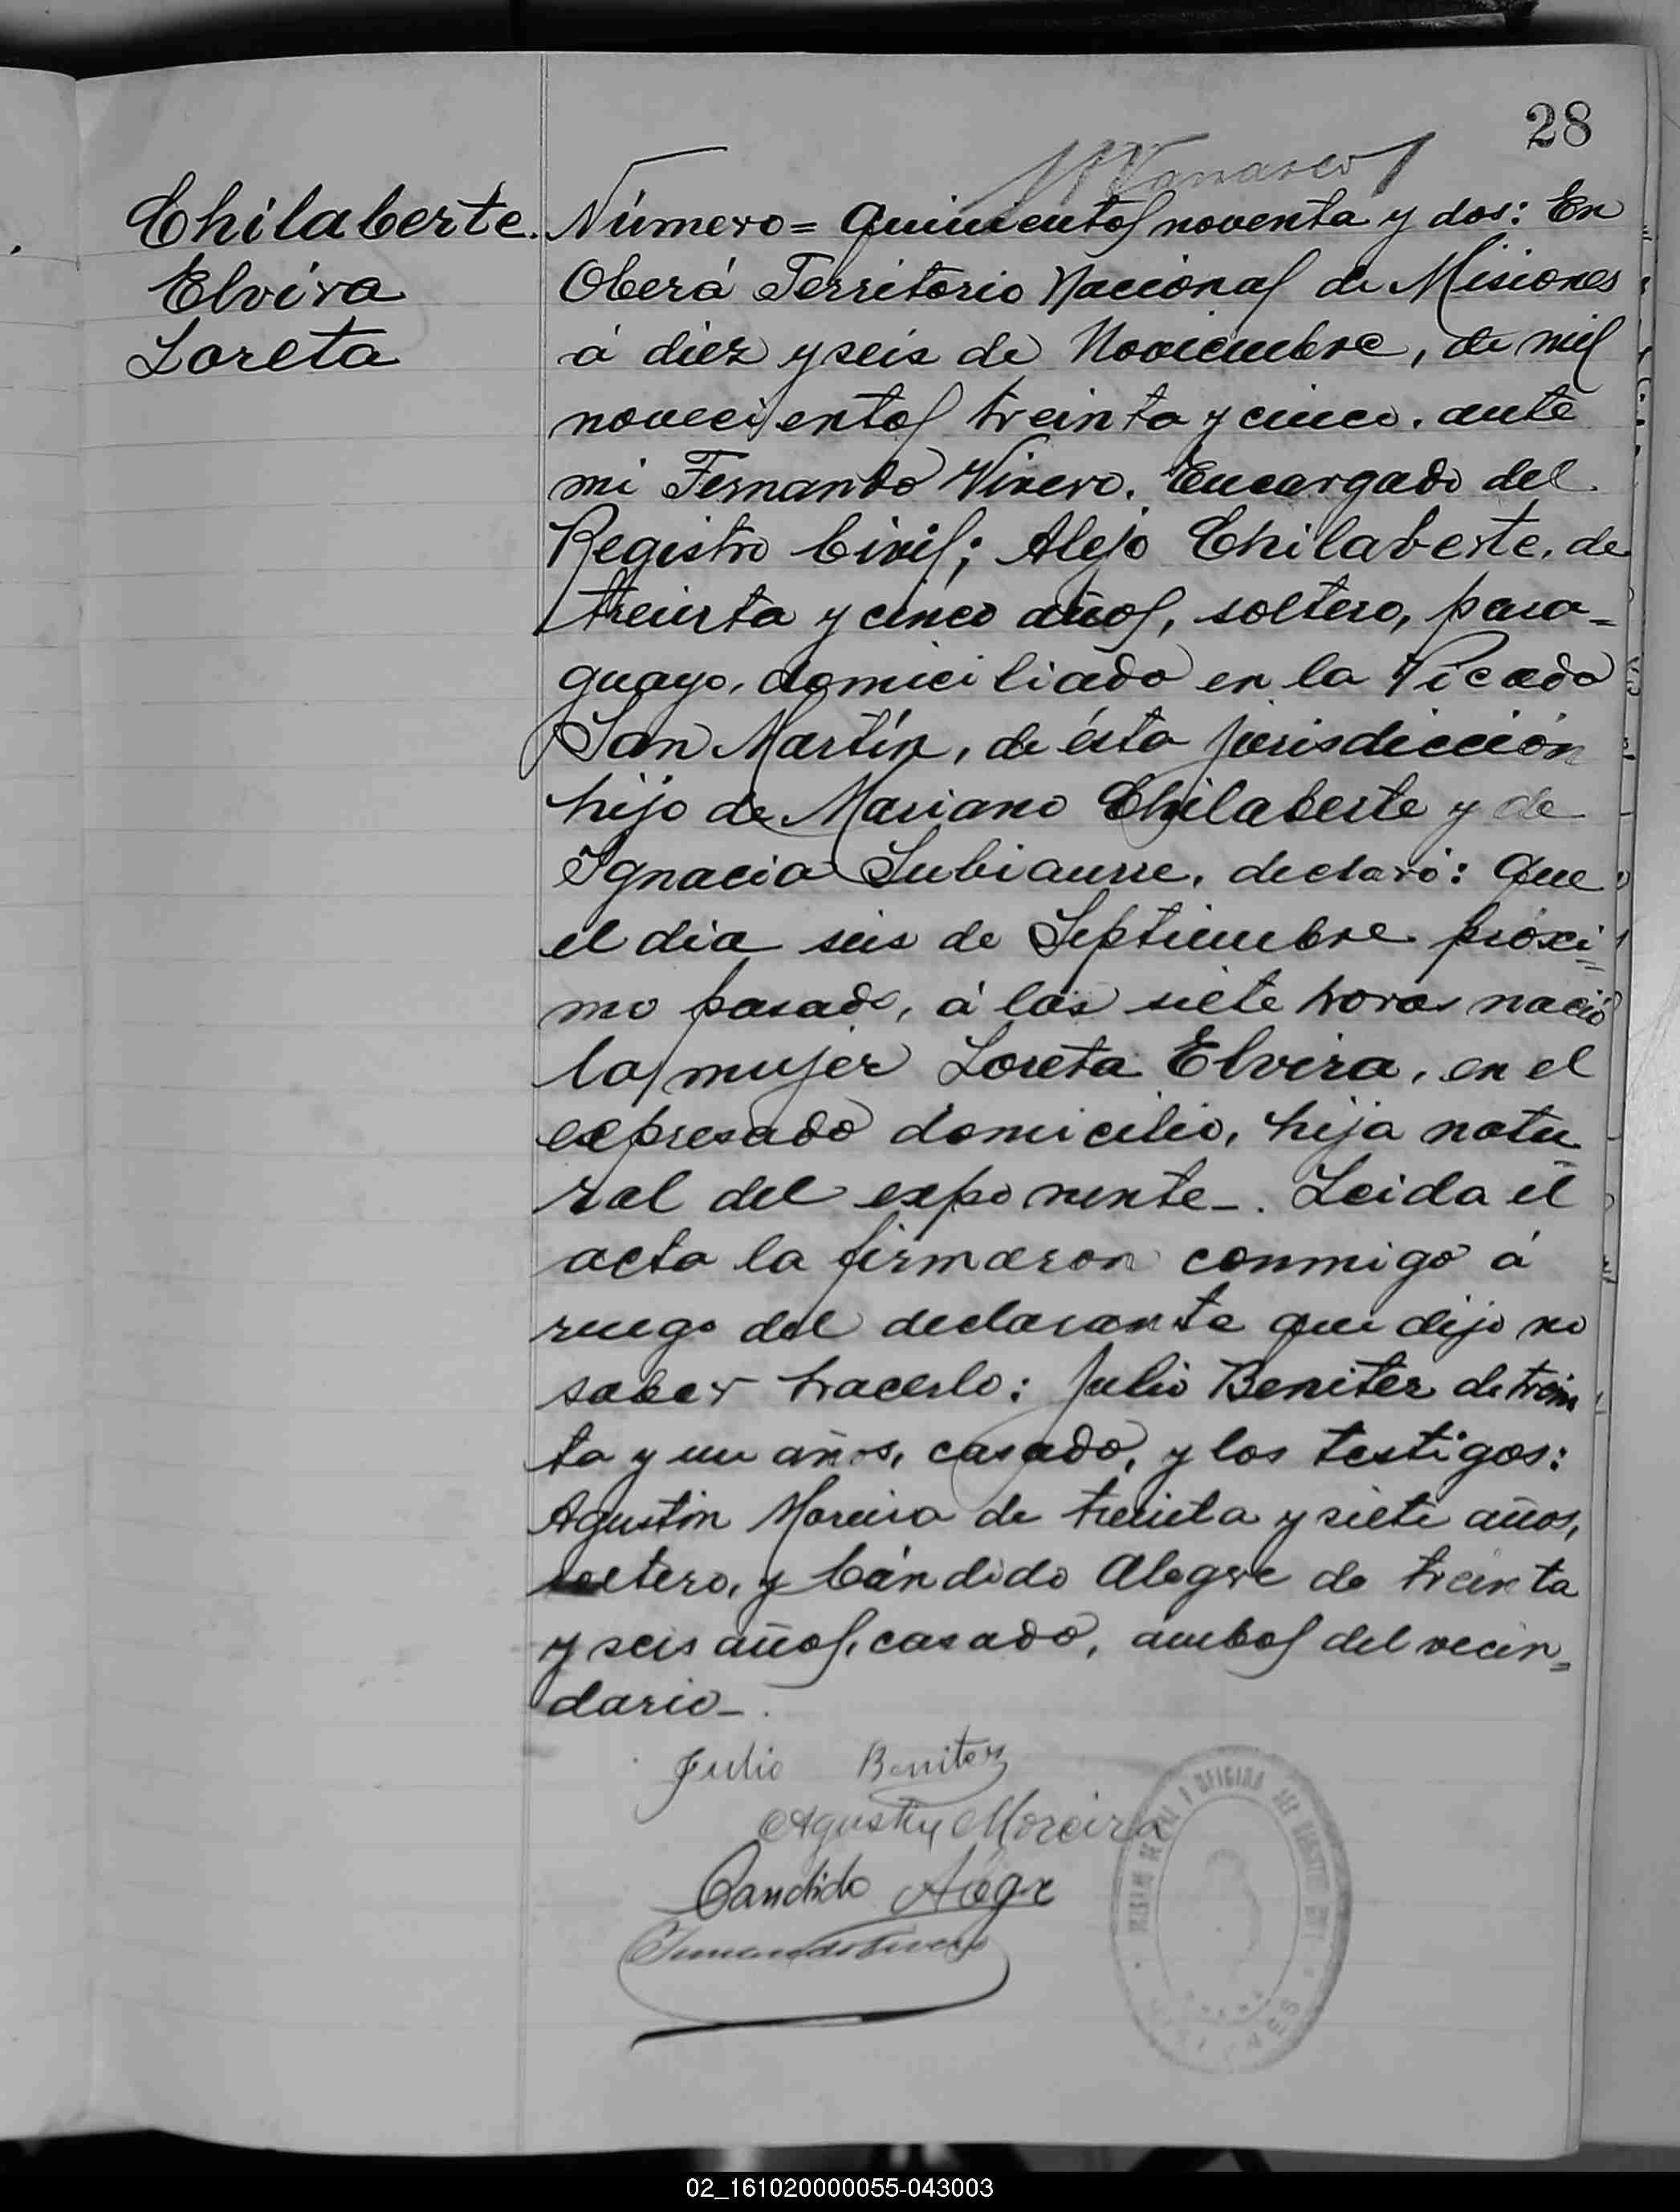 28
Chilaberte.
Elvira
Loreta
Número = Quinientos noventa y dos: En
Oberá Territorio Nacional de Misiones
á diez y seis de Noviembre, de mil
novecientos treinta y cinco. ante
mi Fernando Vivero. Encargado del
Registro Civil; Alejo Chilaberte, de
treinta y cinco años, soltero, para=
guayo, domiciliado en la Picada
San Martín, de ésta jurisdicción
hijo de Mariano Chilaberte y de
Ignacia Subiaurre, declaró: Que
el dia seis de Septiembre próxi=
mo pasado, á las siete horas nació
la mujer Loreta Elvira, en el
expresado domicilio, hija natu
ral del exponente_. Leida el
acta la firmaron conmigo á
ruego del declarante que dijo no
saber hacerlo: Julio Benitez de trein
ta y un años, casado, y los testigos:
Agustin Moreira de treinta y siete años,
soltero, y Cándido Alegre de treinta
y seis años, casado, ambos del vecin=
dario_.
Julio Benitez
Agustin Moreira
Candido Alegre
02_161020000055-043003